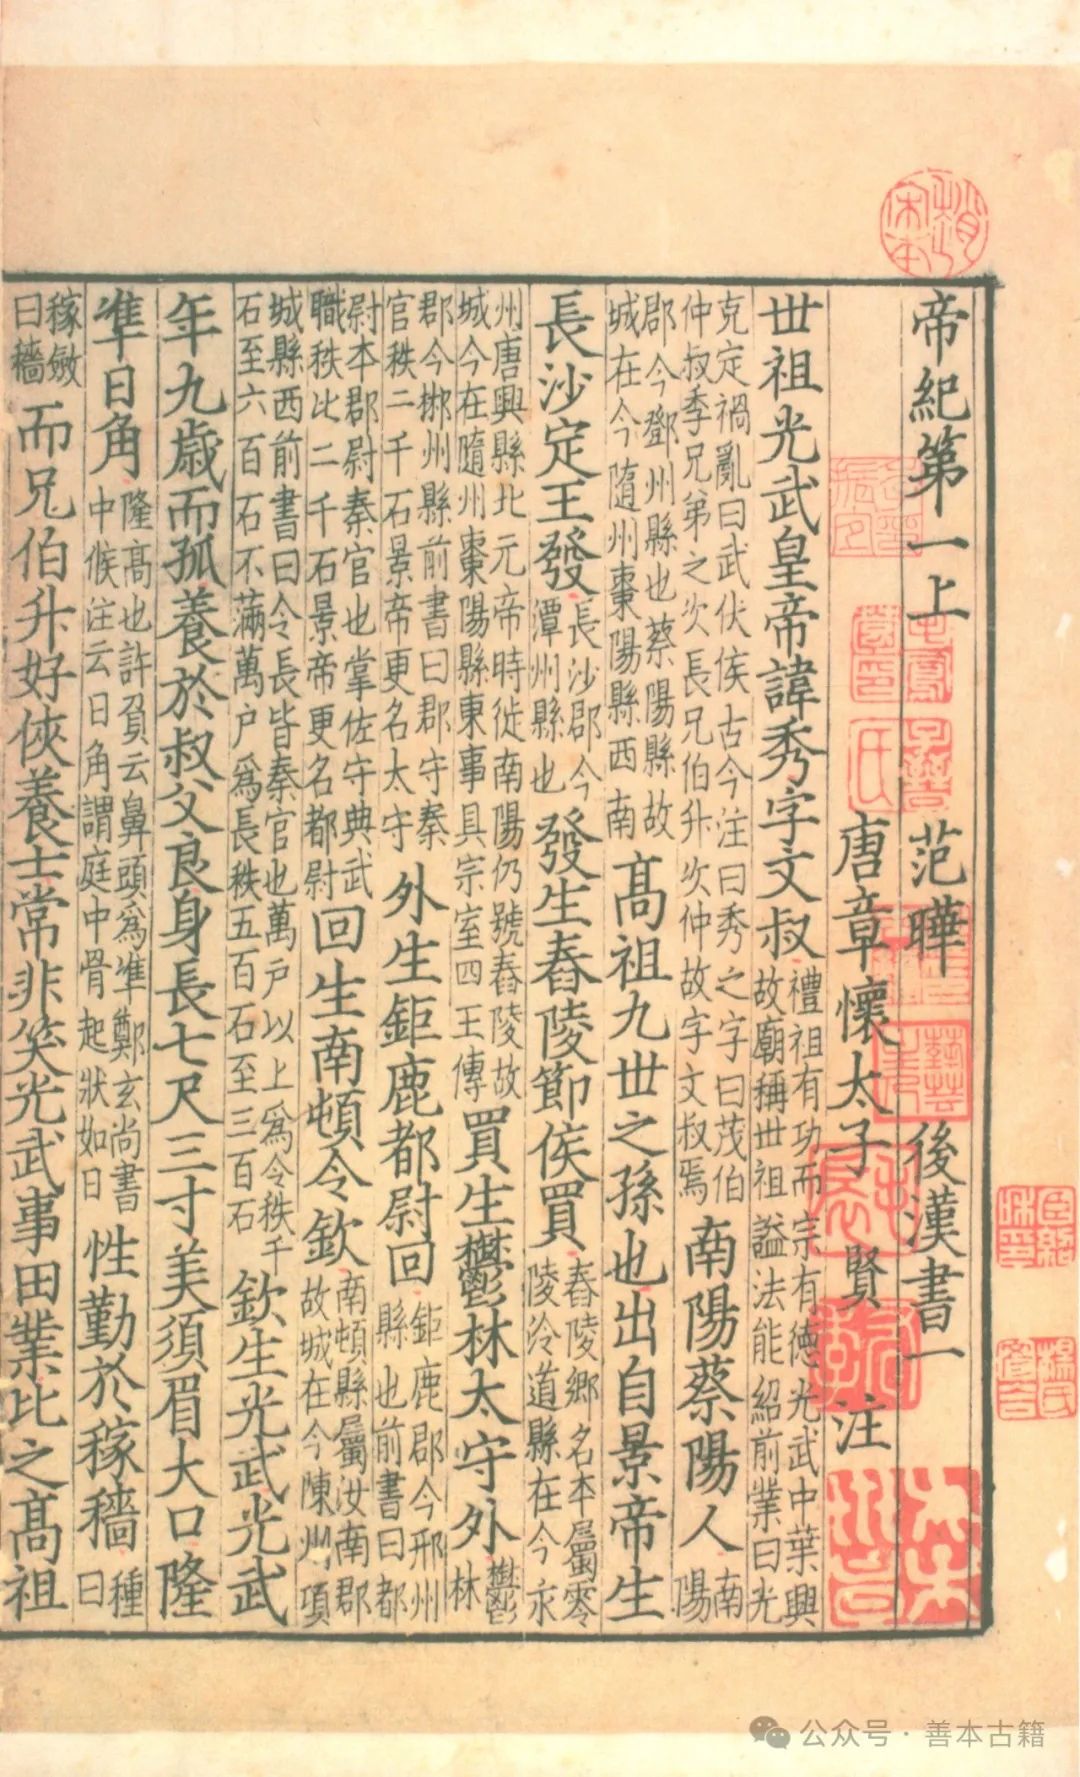 帝紀第一上 范曄 後漢書一
唐章懷太子 賢 注
世祖光武皇帝諱秀字文叔禮祖有功而宗有德光武中葉興故廟稱世祖謚法能紹前業曰光
克定禍亂曰武伏侯古今注曰秀之字曰茂伯仲叔季兄弟之次長兄伯升次仲故字文叔焉南陽蔡陽人南陽
郡今鄧州縣也蔡陽縣故城在今隨州棗陽縣西南高祖九世之孫也出自景帝生
長沙定王發長沙郡今潭州縣也發生舂陵節侯買舂陵鄉名本屬零陵泠道縣在今永
州唐興縣北元帝時徙南陽仍號舂陵故城今在隨州棗陽縣東事具宗室四王傳買生鬱林太守外鬱林
郡今郴州縣前書曰郡守秦官秩二千石景帝更名太守外生鉅鹿都尉回鉅鹿郡今邢州縣也前書曰都
尉本郡尉秦官也掌佐守典武職秩比二千石景帝更名都尉回生南頓令欽南頓縣屬汝南郡故城在今陳州項
城縣西前書曰令長皆秦官也萬戶以上爲令秩千石至六百石不滿萬戶爲長秩五百石至三百石欽生光武光武
年九歲而孤養於叔父良身長七尺三寸美須眉大口隆
準日角隆高也許負云鼻頭爲準鄭玄尚書中候注云日角謂庭中骨起狀如日性勤於稼穡種曰
稼斂曰穡而兄伯升好俠養士常非笑光武事田業比之高祖
公众号·善本古籍